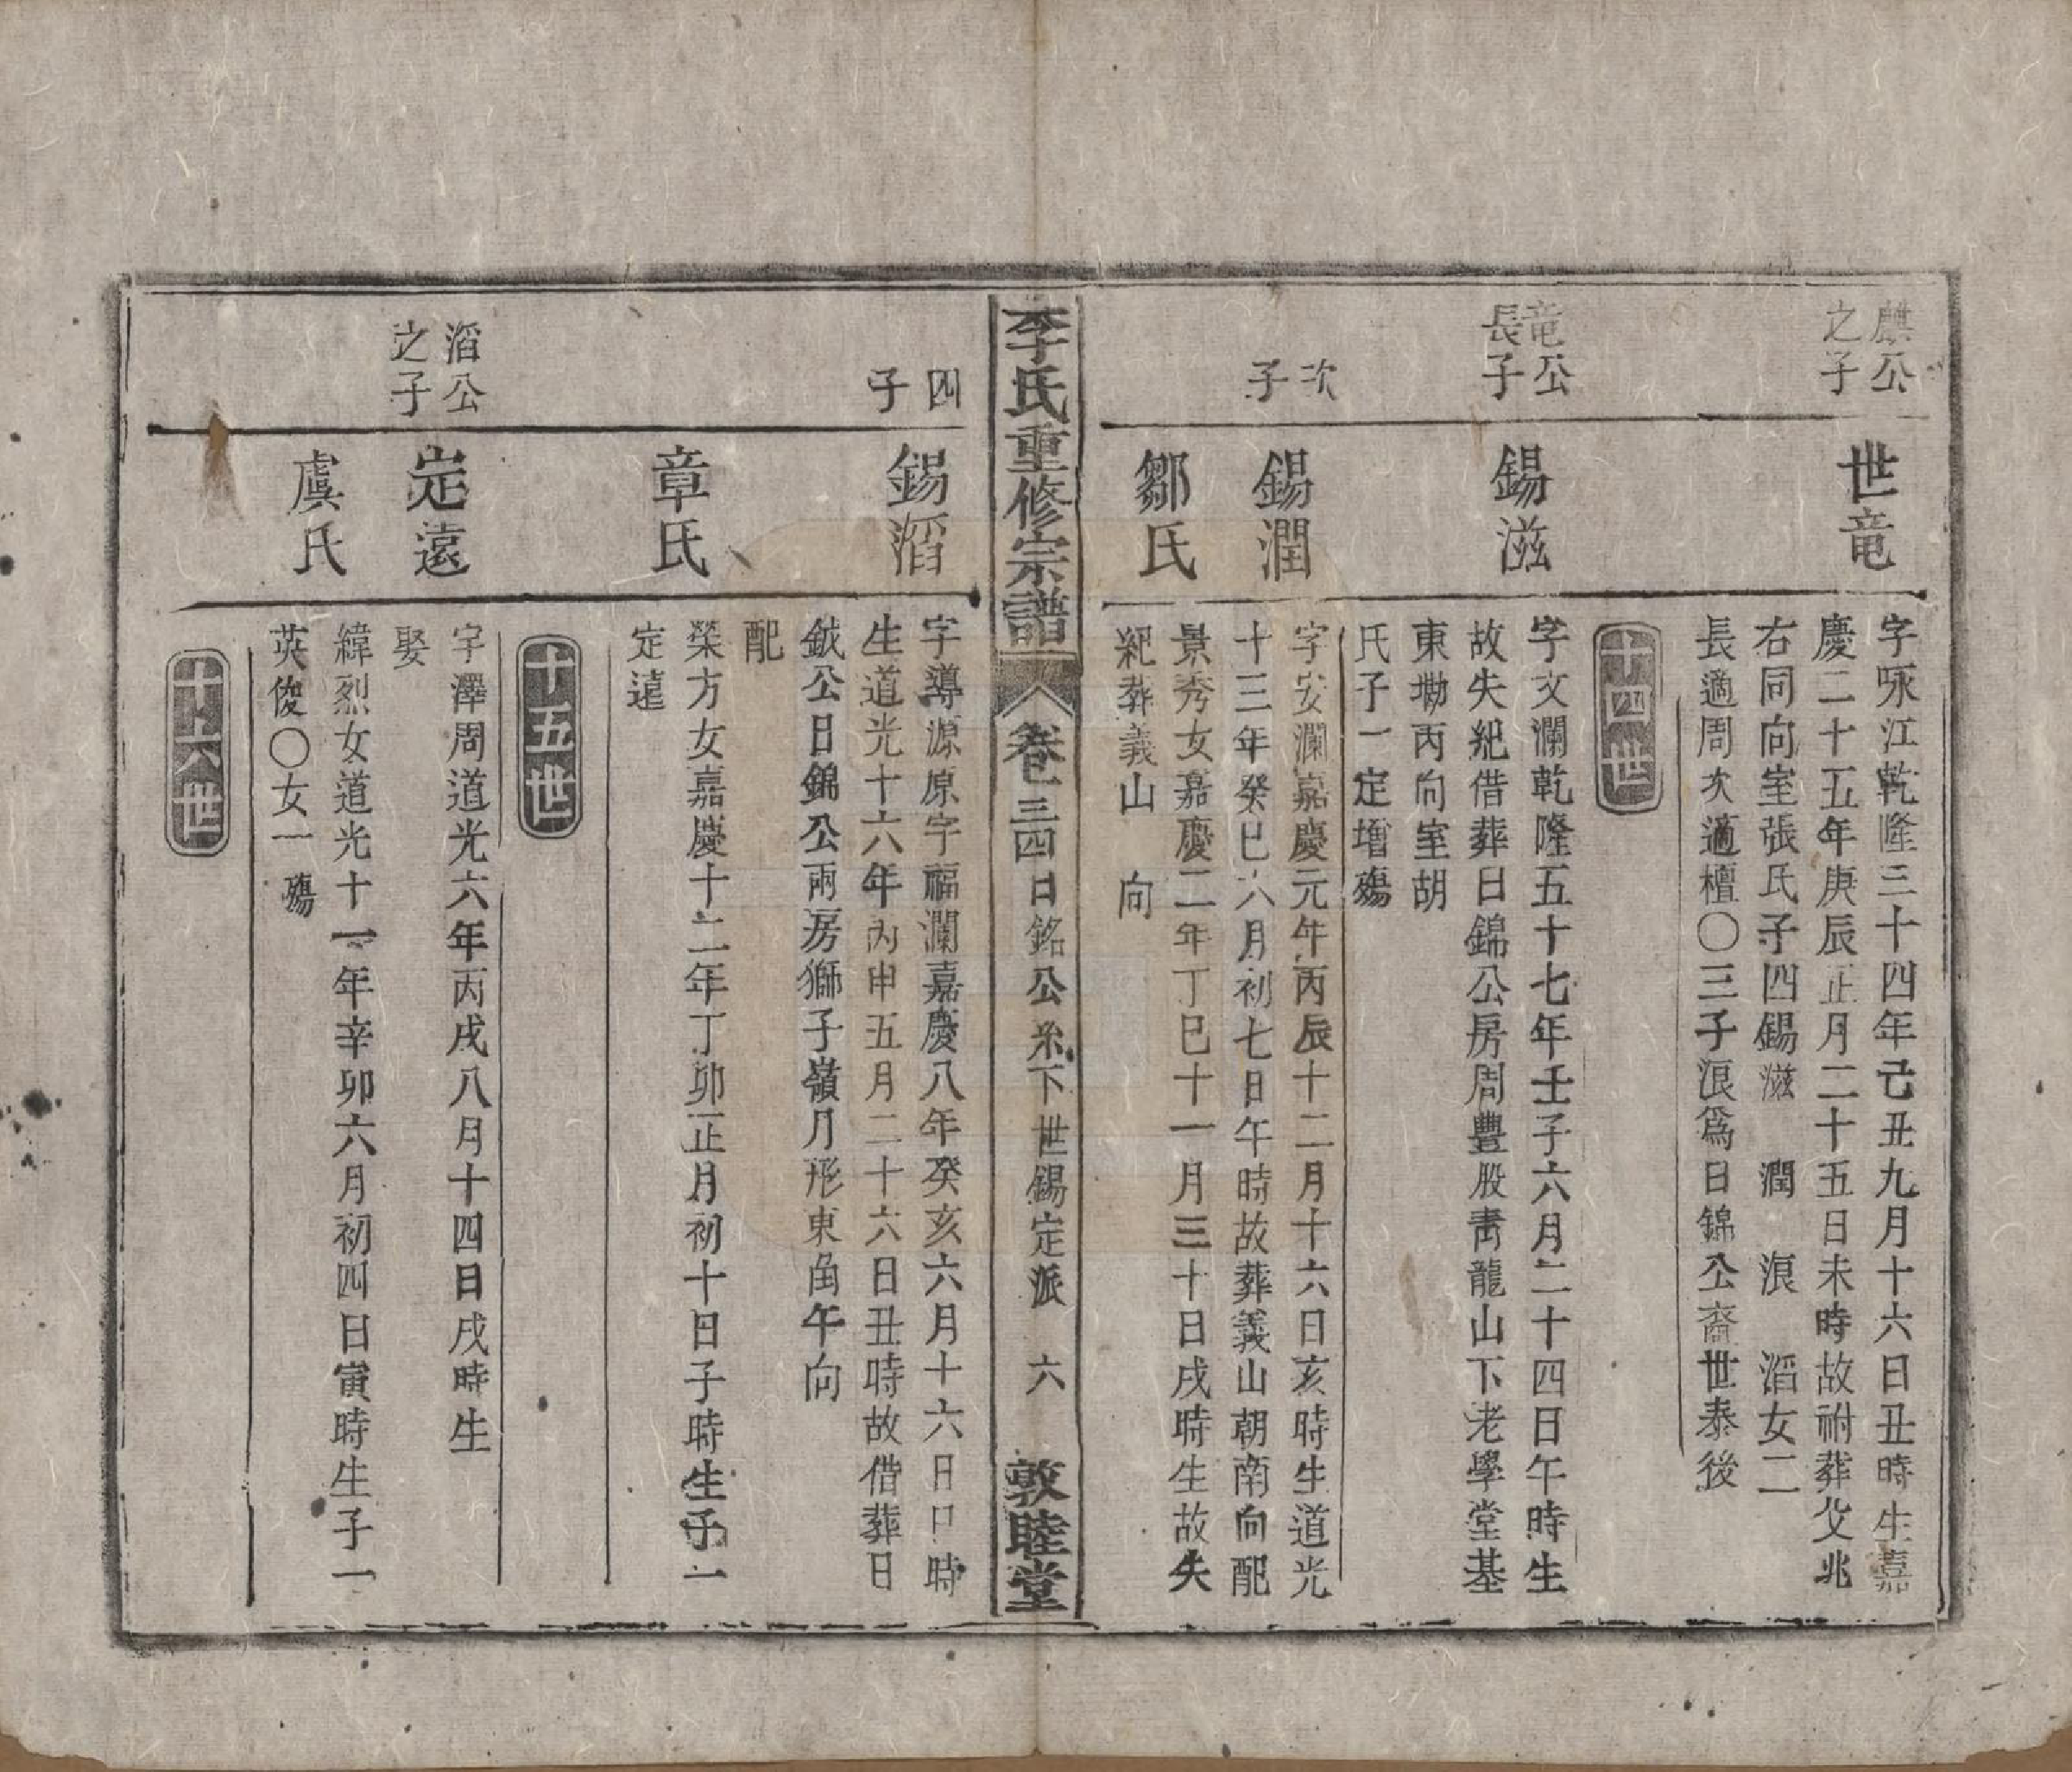 麒公
之子
世竜
字咏江乾隆三十四年己丑九月十六日丑時生嘉
慶二十五年庚辰正月二十五日未時故祔葬父兆
右同向室張氏子四錫滋 潤 浪 滔女二
長適周次適檀〇三子浪為日錦公裔世泰後
十四世
竜公
長子
錫滋
字文瀾乾隆五十七年壬子六月二十四日午時生
故失紀借葬日錦公房周豐股靑龍山下老學堂基
東坳丙向室胡
氏子一定增殤
次
子
錫潤
字安瀾嘉慶元年丙辰十二月十六日亥時生道光
十三年癸巳六月初七日午時故葬義山朝南向配
鄒氏
景秀女嘉慶二年丁巳十一月三十日戌時生故失
紀葬義山 向
李氏重修宗譜
卷三四日銘公系下世錫定派 六 敦睦堂
四
子
錫滔
字導源原字福瀾嘉慶八年癸亥六月十六日口時
生道光十六年丙申五月二十六日丑時故借葬日
鉞公日錦公兩房獅子嶺月形東角午向
配
章氏
榮方女嘉慶十二年丁卯正月初十日子時生子一
定遠
十五世
滔公
之子
定遠
字澤周道光六年丙戌八月十四日戌時生
娶
虞氏
緯烈女道光十一年辛卯六月初四日寅時生子一
英俊〇女一 殤
十六世